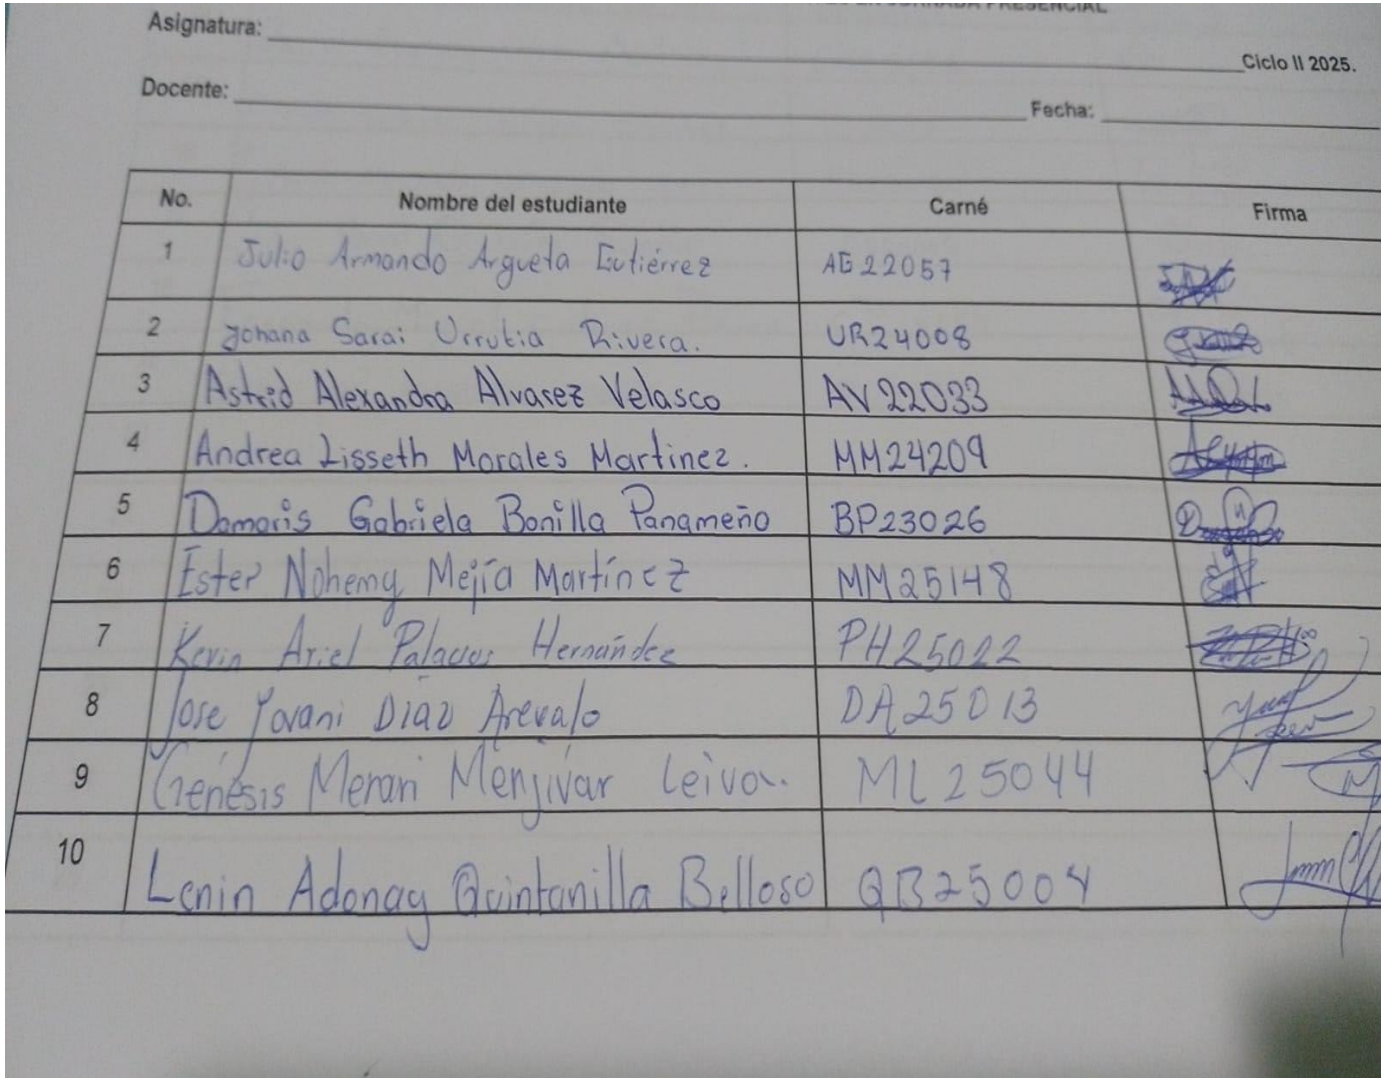 JORNADA PRESENCIAL
Asignatura: Ciclo II 2025.
Docente: Fecha:
No. Nombre del estudiante Carné Firma
1 Julio Armando Argueta Gutiérrez AG22057
2 Johana Sarai Urrutia Rivera. UR24008
3 Astrid Alexandra Alvarez Velasco AV22033
4 Andrea Lisseth Morales Martinez. MM24209
5 Damaris Gabriela Bonilla Panameño BP23026
6 Ester Nohemy Mejía Martínez MM25148
7 Kevin Ariel Palacios Hernández PH25022
8 Jose Yovani Díaz Arevalo DA25013
9 Génesis Merari Menjívar Leiva. ML25044
10 Lenin Adonay Quintanilla Belloso QB25004